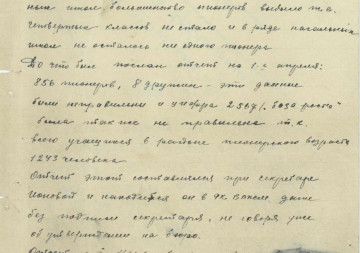 ных школ большинство пионеров выбыло т.к.
четвертых классов не стало и в ряде начальных
школ не осталось ни одного пионера.
То что был послан отчет на 1-е апреля:
856 пионеров, 8 дружин - эти данные
были неправильны и цифра
была также не правильна т.к.
всего учащихся в районе пионерского возраста
1243 человека
Отчет этот составлялся при секретаре
Ионовой и находится он в РК ВЛКСМ даже
без подписи секретаря, не говоря уже
об утверждении на бюро.